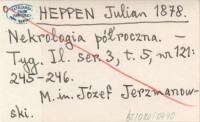 HEPPEN Julian 1878.
Nekrologia półroczna. –
Tyg. Il. ser. 3, t. 5, nr 121:
245-246.
M. in. Józef Jerzmanow-
ski.